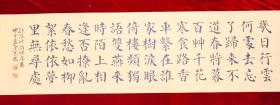 幾日行雲
何處去忘
了歸來不
道春將暮
百艸千花
寒食路香
車繫在誰
家樹淚眼
倚樓頻獨
語雙燕來
時陌上相
逢否撩亂
春愁如柳
絮依依夢
里無尋處